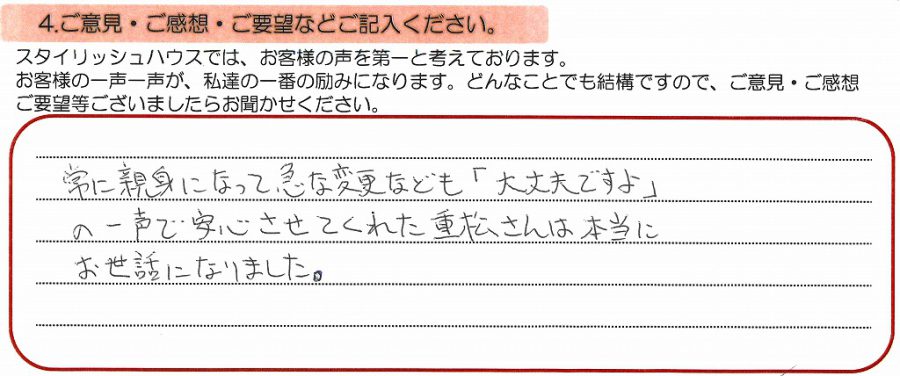 4.ご意見・ご感想・ご要望などご記入ください。
スタイリッシュハウスでは、お客様の声を第一と考えております。
お客様の一声一声が、私達の一番の励みになります。どんなことでも結構ですので、ご意見・ご感想
ご要望等ございましたらお聞かせください。
常に親身になって急な変更なども「大丈夫ですよ」
の一声で安心させてくれた重松さんは本当に
お世話になりました。